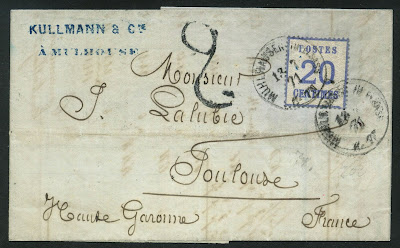 KULLMANN & Cie
À MULHOUSE
POSTES
20
CENTIMES
2
Monsieur
J. Lalubie
Toulouse
Haute Garonne
France